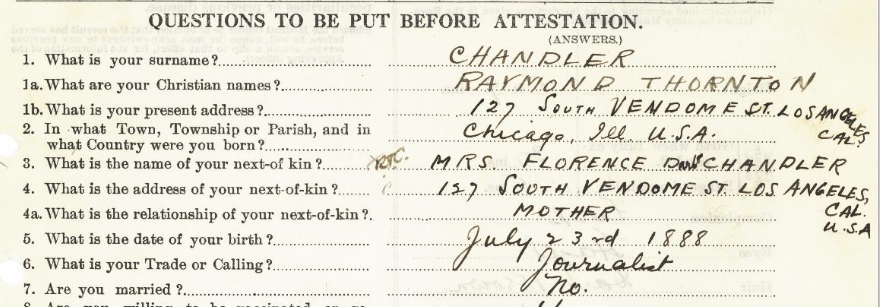 QUESTIONS TO BE PUT BEFORE ATTESTATION.
(ANSWERS.)
1. What is your surname? CHANDLER
1a. What are your Christian names? RAYMOND THORNTON
1b. What is your present address? 127 SOUTH VENDOME ST. LOS ANGELES, CAL.
2. In what Town, Township or Parish, and in
what Country were you born? Chicago, Ill. U.S.A.
3. What is the name of your next-of kin? R.T.C. MRS. FLORENCE CHANDLER
4. What is the address of your next-of-kin? 127 SOUTH VENDOME ST LOS ANGELES, CAL. U.S.A
4a. What is the relationship of your next-of-kin? MOTHER
5. What is the date of your birth? July 23rd 1888
6. What is your Trade or Calling? Journalist
7. Are you married? No.